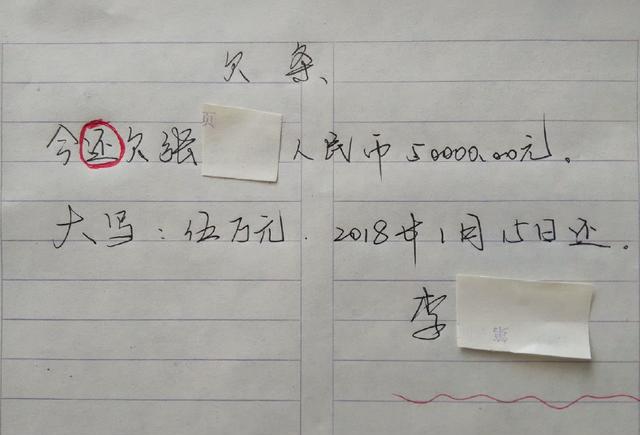 欠条
今还欠张 人民币50000.00元。
大写：伍万元. 2018年1月15日还.
李